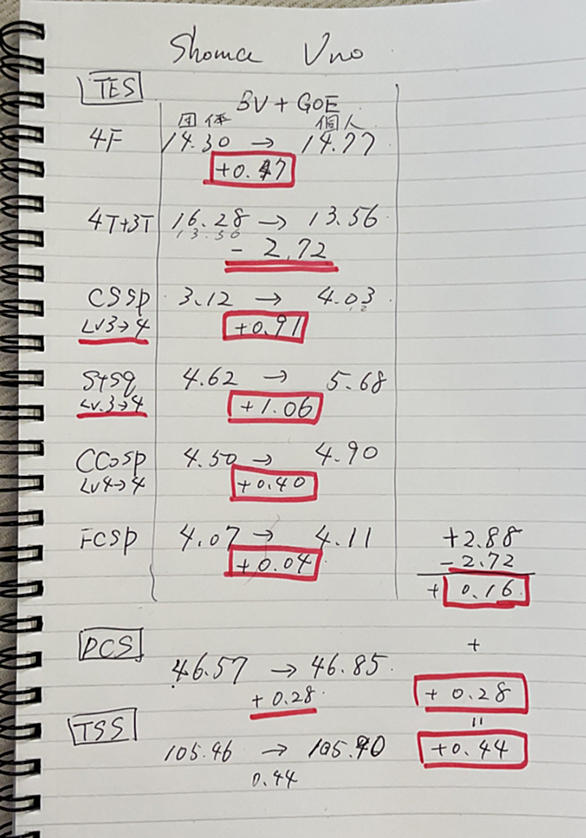 Shoma Uno
TES
BV + GOE
団体 個人
4F 14.30 → 14.77
+0.47
4T+3T 16.28 → 13.56
13.56
- 2.72
CSSp 3.12 → 4.03
LV3→4 +0.91
StSq 4.62 → 5.68
LV.3→4 +1.06
CCoSp 4.50 → 4.90
LV4→4 +0.40
FCSp 4.07 → 4.11
+0.04
+2.88
-2.72
+ 0.16
PCS
46.57 → 46.85
+ 0.28
+
+ 0.28
=
TSS
105.46 → 105.90
0.44
+0.44